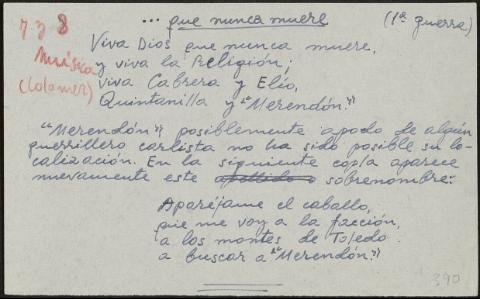 ... que nunca muere (1ª guerra)
7.3 8
Música
(Colomer)
Viva Dios que nunca muere,
y viva la Religión;
viva Cabrera y Elío,
Quintanilla y "Merendón."
"Merendón" posiblemente apodo de algún
guerrillero carlista no ha sido posible su lo-
calización. En la siguiente copla aparece
nuevamente este apellido o sobrenombre:
Aparéjame el caballo,
que me voy a la facción,
a los montes de Toledo
a buscar a "Merendón."
390